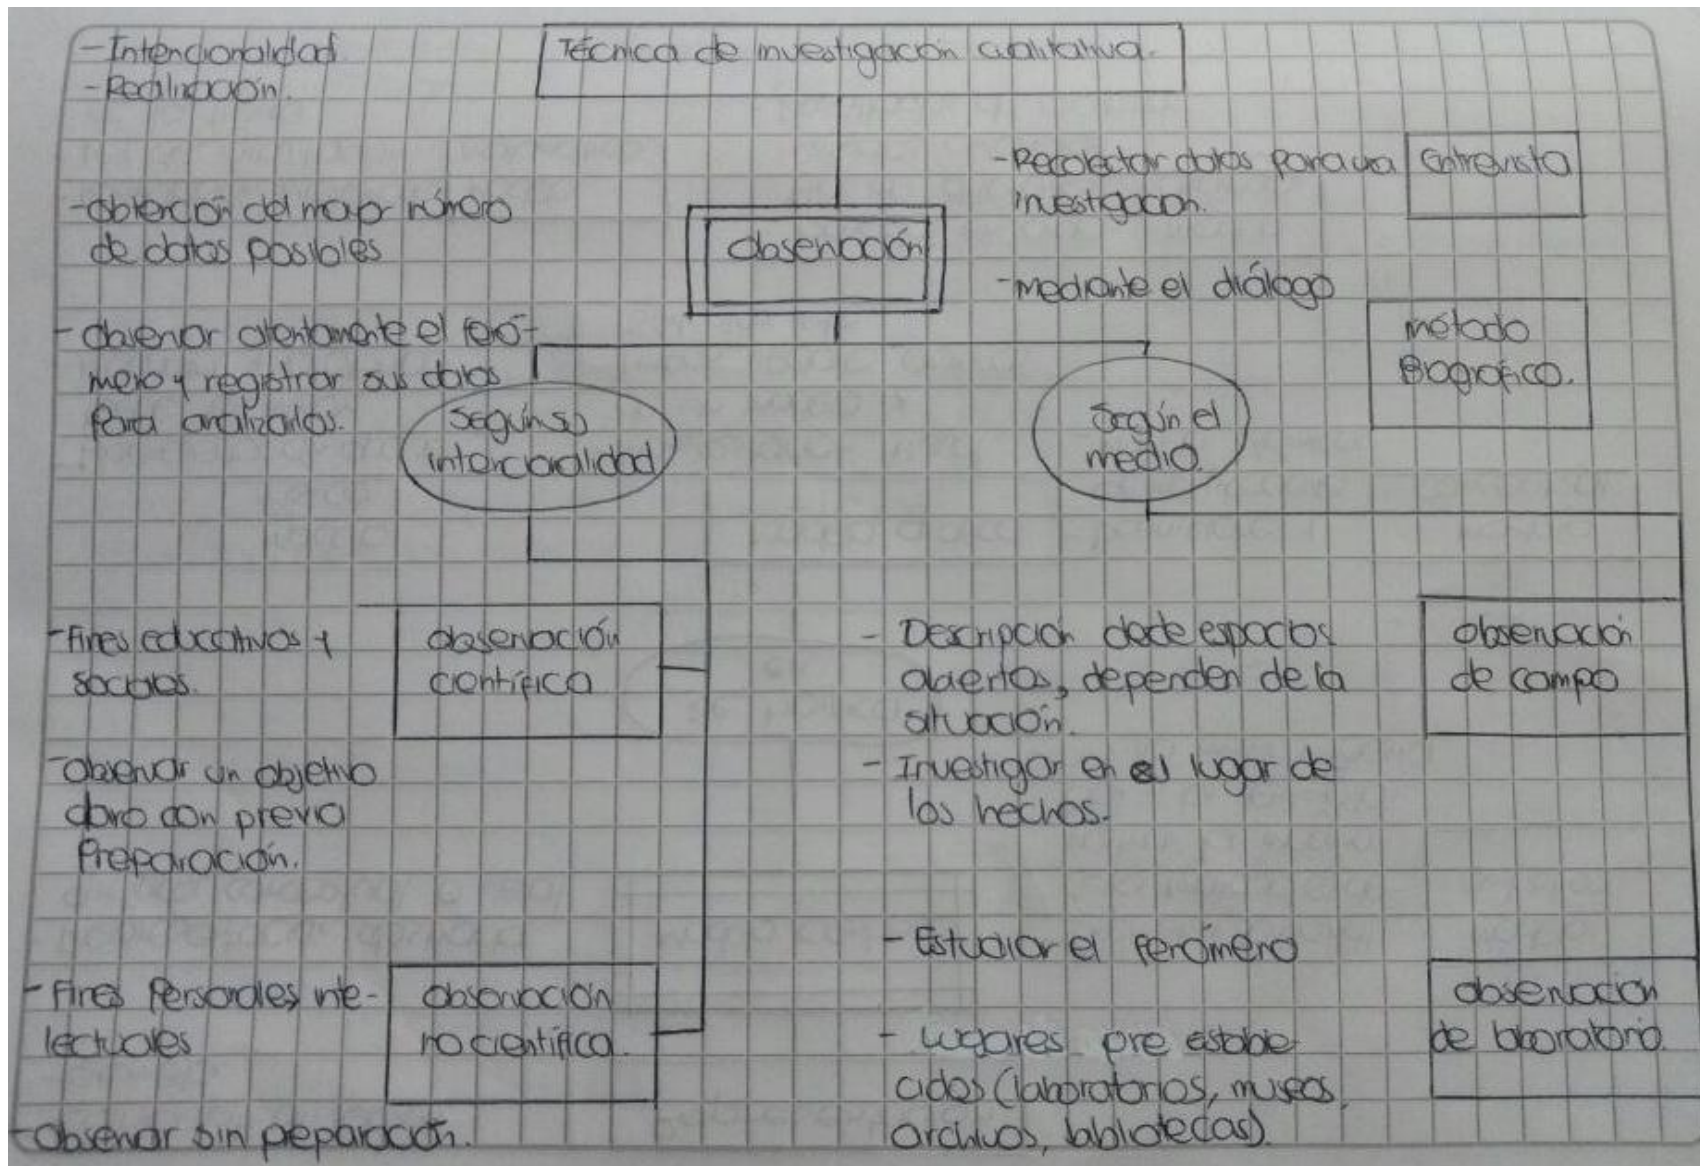 - Intencionalidad
- Realización.
Técnica de investigación cualitativa.
- Recolectar datos para una
investigacion.
Entrevista
- obtención del mayor número
de datos posibles
observación
- mediante el diálogo
método
Biográfico.
- observar atentamente el fenó-
meno y registrar sus datos
para analizarlos.
Según su
intencionalidad
Según el
medio
- Fines educativos y
sociales.
observación
científica
- Descripción desde espacios
abiertos, dependen de la
situación.
observación
de campo
- observar un objetivo
claro con previa
Preparación.
- Investigar en el lugar de
los hechos.
- Estudiar el fenómeno
- Fines Personales, inte-
lectuales
observación
no científica.
observación
de laboratorio.
- Lugares pre estable
cidos (laboratorios, museos,
archivos, bibliotecas).
- observar sin peparación.